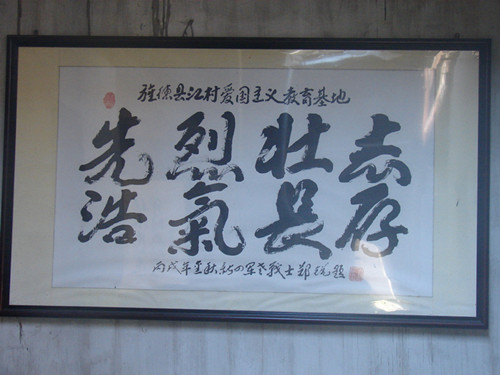 旌德县江村爱国主义教育基地
先烈壮志
浩氣長存
丙戌年金秋新四军老战士郑锐题